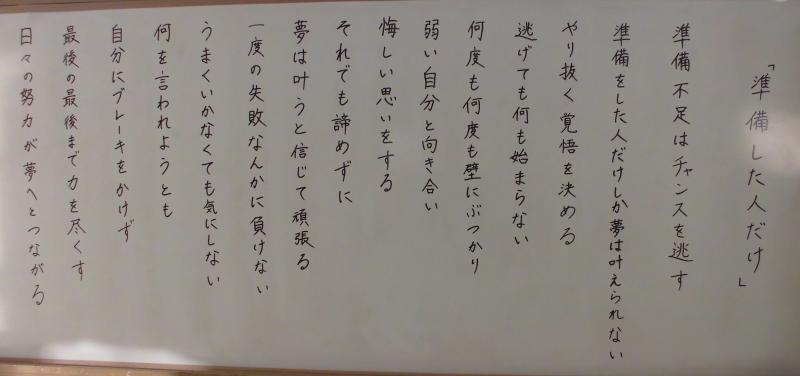 「準備した人だけ」
準備不足はチャンスを逃す
準備をした人だけしか夢は叶えられない
やり抜く覚悟を決める
逃げても何も始まらない
何度も何度も壁にぶつかり
弱い自分と向き合い
悔しい思いをする
それでも諦めずに
夢は叶うと信じて頑張る
一度の失敗なんかに負けない
うまくいかなくても気にしない
何を言われようとも
自分にブレーキをかけず
最後の最後まで力を尽くす
日々の努力が夢へとつながる